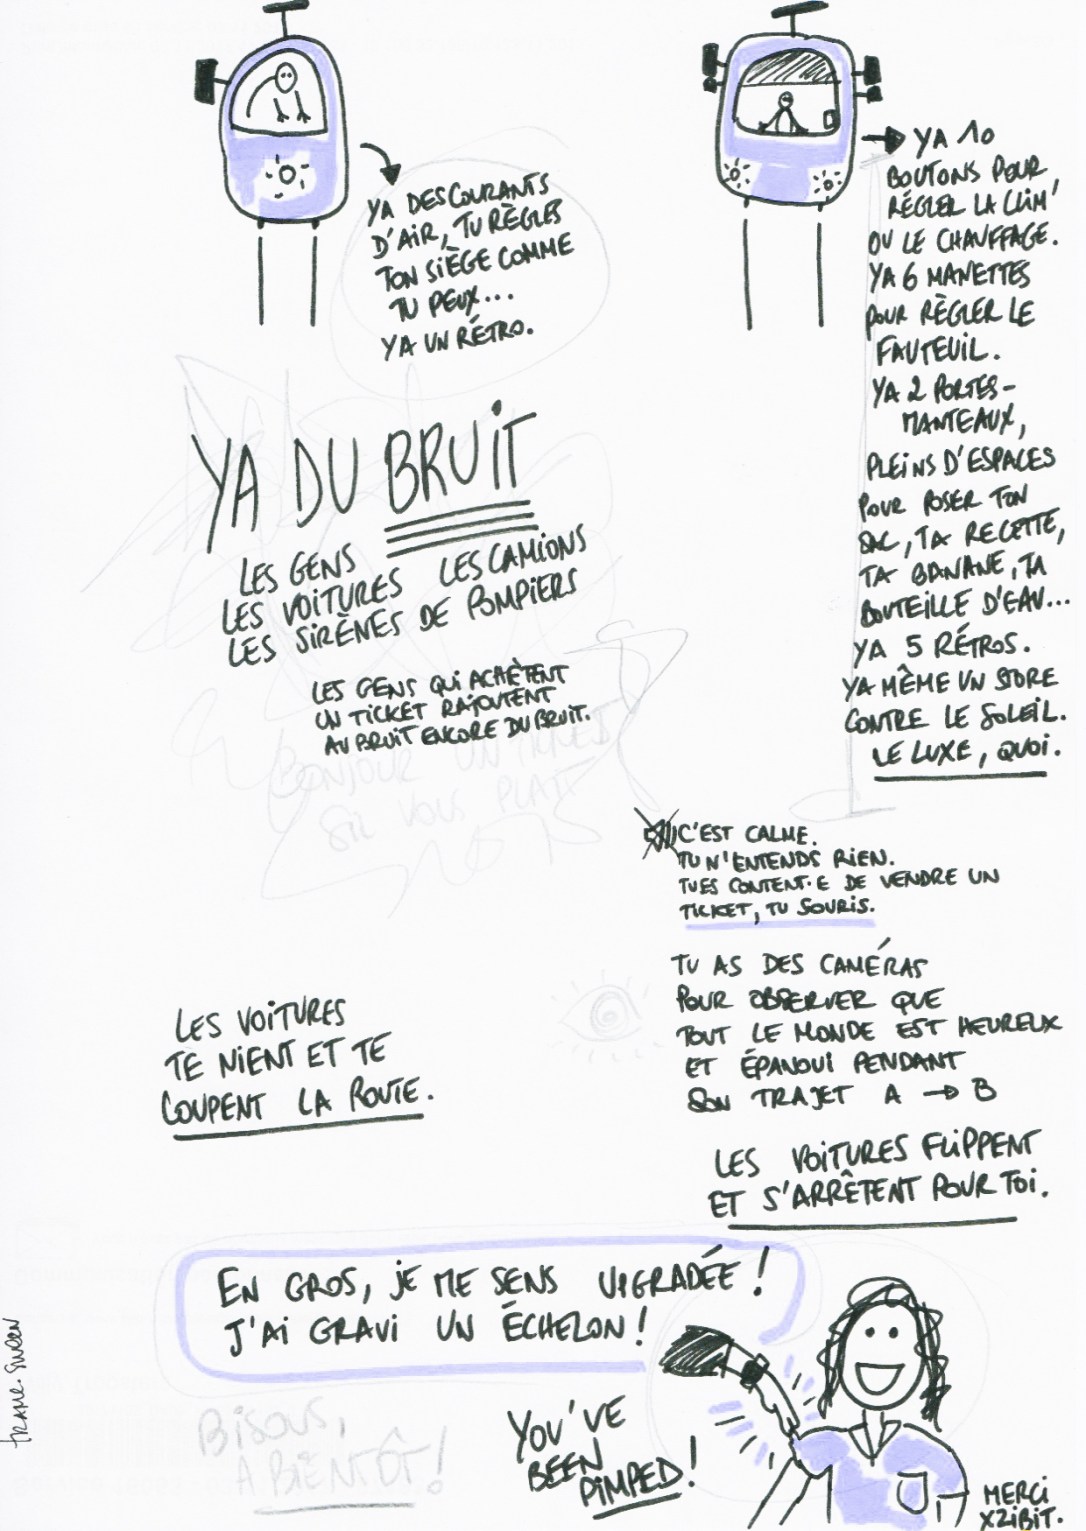 YA DES COURANTS
D'AIR, TU RÈGLES
TON SIÈGE COMME
TU PEUX...
YA UN RÉTRO.
YA 10
BOUTONS POUR
RÉGLER LA CLIM'
OU LE CHAUFFAGE.
YA 6 MANETTES
POUR RÈGLER LE
FAUTEUIL.
YA 2 PORTES-
MANTEAUX,
PLEINS D'ESPACES
POUR POSER TON
SAC, TA RECETTE,
TA BANANE, TA
BOUTEILLE D'EAU...
YA 5 RÉTROS.
YA MÊME UN STORE
CONTRE LE SOLEIL.
LE LUXE, QUOI.
YA DU BRUIT
LES GENS
LES VOITURES LES CAMIONS
LES SIRÈNES DE POMPIERS
LES GENS QUI ACHÈTENT
UN TICKET RAJOUTENT
AU BRUIT ENCORE DU BRUIT.
BONJOUR UN TICKET
SIL VOUS PLAIT
C'EST CALME.
TU N'ENTENDS RIEN.
TU ES CONTENT·E DE VENDRE UN
TICKET, TU SOURIS.
TU AS DES CAMÉRAS
POUR OBSERVER QUE
TOUT LE MONDE EST HEUREUX
ET ÉPANOUI PENDANT
SON TRAJET A → B
LES VOITURES
TE NIENT ET TE
COUPENT LA ROUTE.
LES VOITURES FLIPPENT
ET S'ARRÊTENT POUR TOI.
EN GROS, JE ME SENS UPGRADÉE !
J'AI GRAVI UN ÉCHELON !
YOU'VE
BEEN
PIMPED !
BISOUS,
A BIENTÔT !
MERCI
XZIBIT.